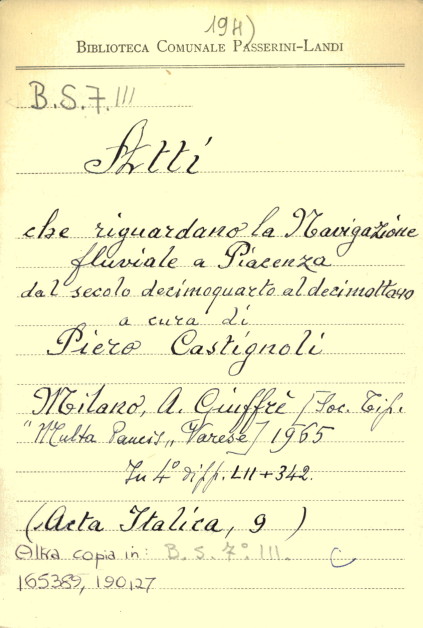 194)
BIBLIOTECA COMUNALE PASSERINI-LANDI
B.S.7.III
Atti
che riguardano la Navigazione
fluviale a Piacenza
dal secolo decimoquarto al decimottavo
a cura di
Piero Castignoli
Milano, A. Giuffrè [Soc. Tip.
"Multa Paucis„ Varese] 1965
In 4° di pp. LII+342.
(Acta Italica, 9)
Altra copia in: B.S.7°.III.
165389, 190127